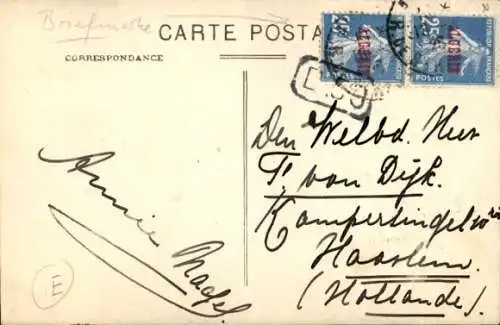 Briefmarke
CARTE POSTA
CORRESPONDANCE
ALGERIE
ALGERIE
POSTES
Den Welbd. Heer
F. van Dijk.
Kampersingel
Haarlem
(Hollande)
Annie
Nagel
E